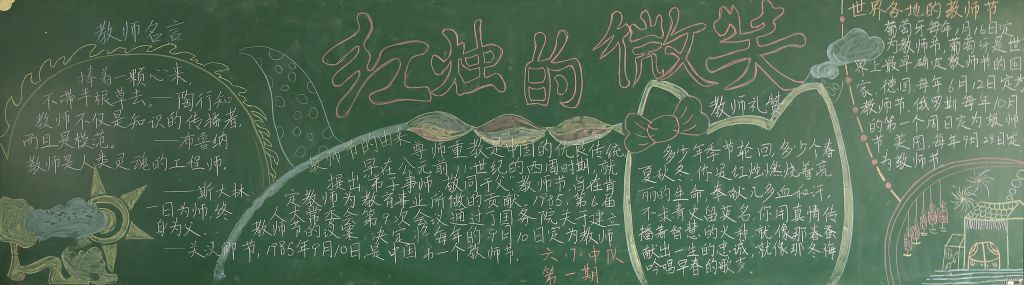 红烛的微笑
教师名言
捧着一颗心来
不带半根草去。——陶行知
教师不仅是知识的传播者，
而且是模范。——布鲁纳
教师是人类灵魂的工程师。
——斯大林
一日为师，终
身为父。
教师节的由来
尊师重教是中国的优良传统
早在公元前11世纪的西周时期，就
提出"弟子事师，敬同于父"教师节，旨在肯
定教师为教育事业所做的贡献。1985，第6届
人大常委会第9次会议通过了国务院关于建立
教师节的议案，决定将每年的9月10日定为教师
节，1985年9月10日，是中国第一个教师节。
六、中队
第一期
教师礼赞
多少年季节轮回，多少个春
夏秋冬，你是红烛燃烧着亮
丽的生命，奉献几多血和汗，
不求青史留英名，你用真情传
播着智慧的火种，就像那春蚕
献出一生的忠诚，就像那冬梅
吟唱早春的歌梦。
世界各地的教师节
葡萄牙每年1月16日定
为教师节，葡萄牙是世
界上最早确定教师节的国
家。德国每年6月12日定为
教师节，俄罗斯每年10月
的第一个周日定为教师
节，美国，每年9月28日定
为教师节